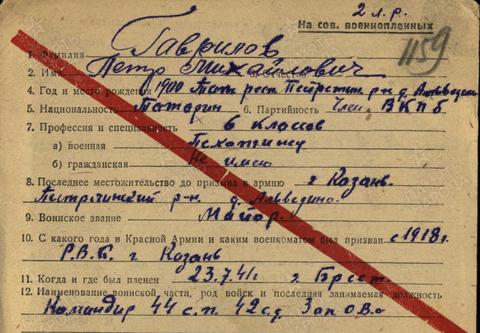 2 л.р.
На сов. военнопленных
1159
1. Фамилия Гаврилов
2. Имя Петр Михайлович
4. Год и место рождения 1900 Тат. рест. р-н д.
5. Национальность Татарин 6. Партийность Член ВКПб
7. Профессия и специальность 6 класов
а) военная Пехотинц
б) гражданская Не имею
8. Последнее местожительство до призыва в армию г Козань.
р-н. д. Альведино.
9. Воинское звание Майор.
10. С какого года в Красной Армии и каким военкоматом был призван с 1918г.
Р.В.К. г. Козань
11. Когда и где был пленен 23.7.41г. г. Брест.
12. Наименование воинской части, род войск и последняя занимаемая должность
Командир 44 с.п. 42 сд ЗапОВо